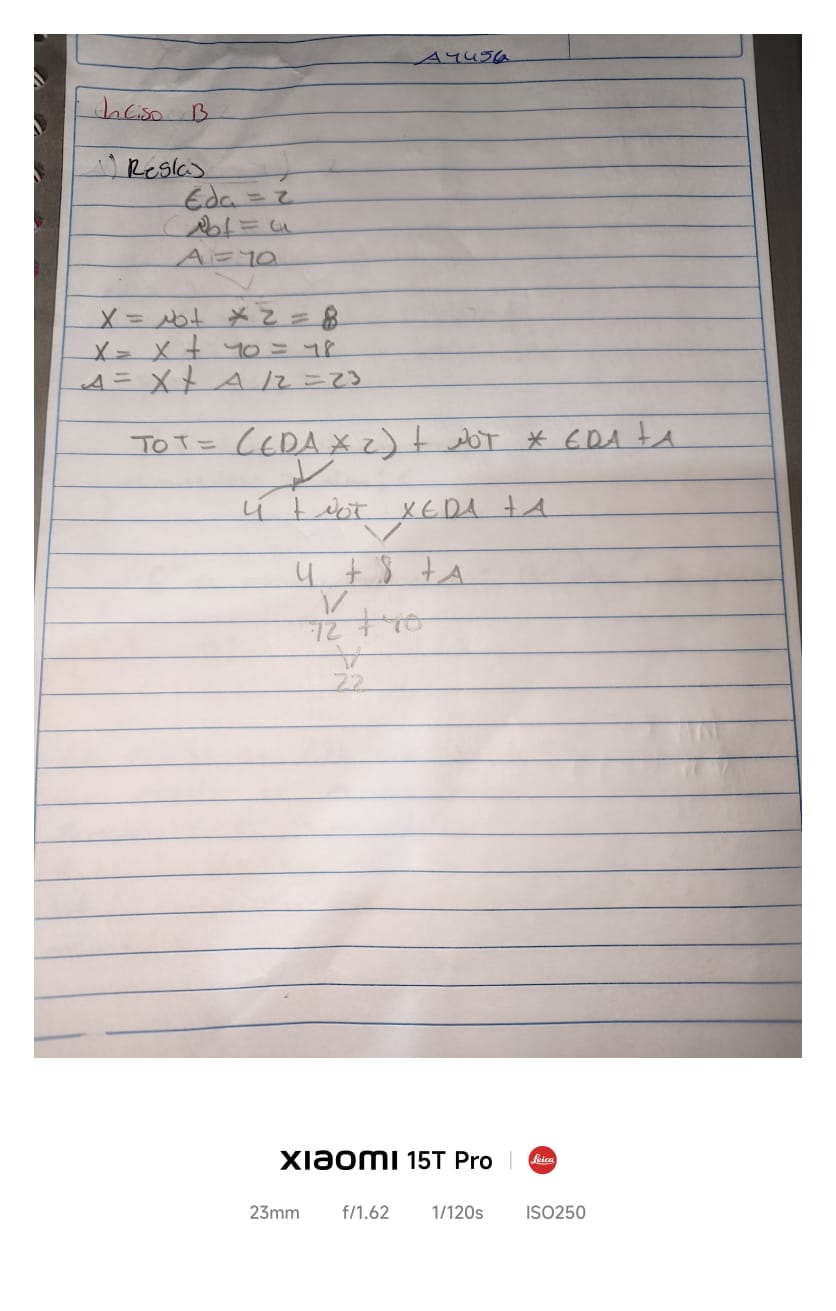 AYUSG
Inciso B
1) Reglas
Eda = 2
Not = 4
A = 10
X = Not * 2 = 8
X = X + 10 = 18
A = X + A /2 = 23
TOT = (EDA * 2) + NOT * EDA + A
4 + NOT * EDA + A
4 + 8 + A
12 + 10
22
XIAOMI 15T Pro | Leica
23mm f/1.62 1/120s ISO250